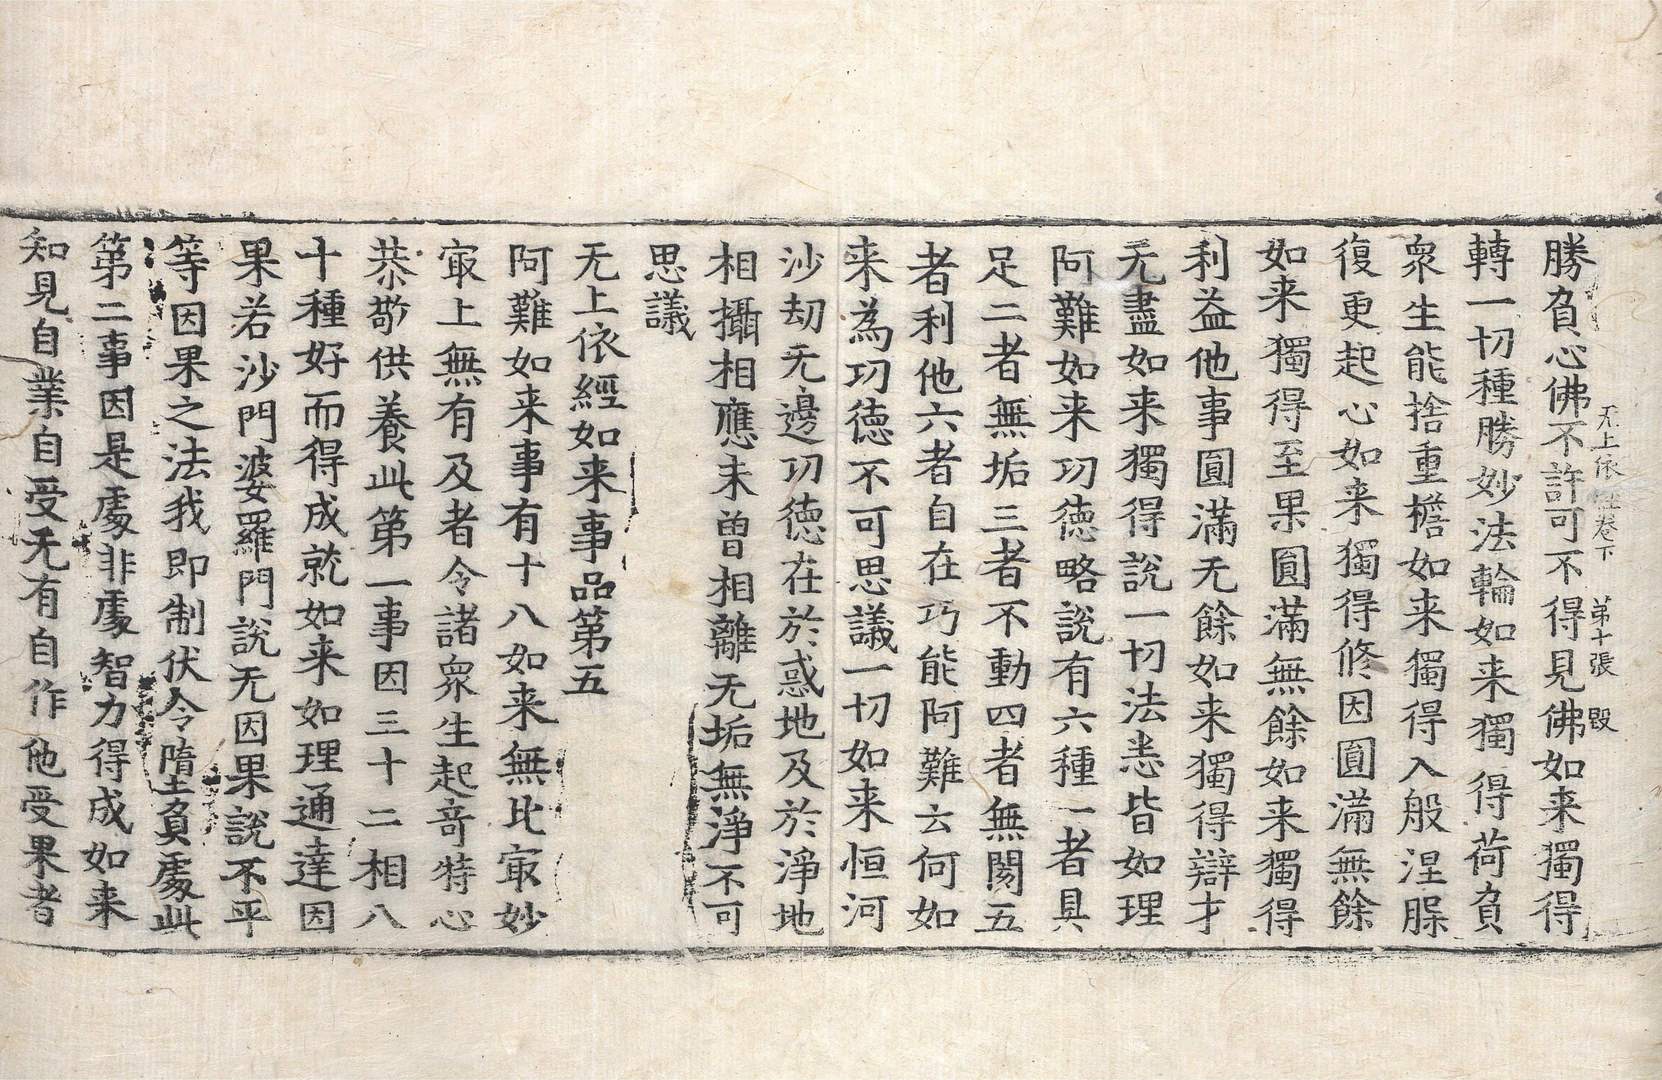 无上依經卷下　第十張　毁
勝負心佛不許可不得見佛如来獨得
轉一切種勝妙法輪如来獨得荷負
衆生能捨重檐如来獨得入般涅脲
復更起心如来獨得修因圓滿無餘
如来獨得至果圓滿無餘如来獨得
利益他事圓滿无餘如来獨得辯才
无盡如来獨得說一切法悉皆如理
阿難如来㓛德略說有六種一者具
足二者無垢三者不動四者無閡五
者利他六者自在巧能阿難云何如
来為㓛德不可思議一切如来恒河
沙劫无邊㓛德在於惑地及於淨地
相攝相應未曽相離无垢無淨不可
思議
无上依經如来事品第五
阿難如来事有十八如来無比㝡妙
㝡上無有及者令諸衆生起竒特心
恭敬供養此第一事因三十二相八
十種好而得成就如来如理通達因
果若沙門婆羅門說无因果說不平
等因果之法我即制伏令墮負處此
第二事因是處非處智力得成如来
知見自業自受无有自作他受果者